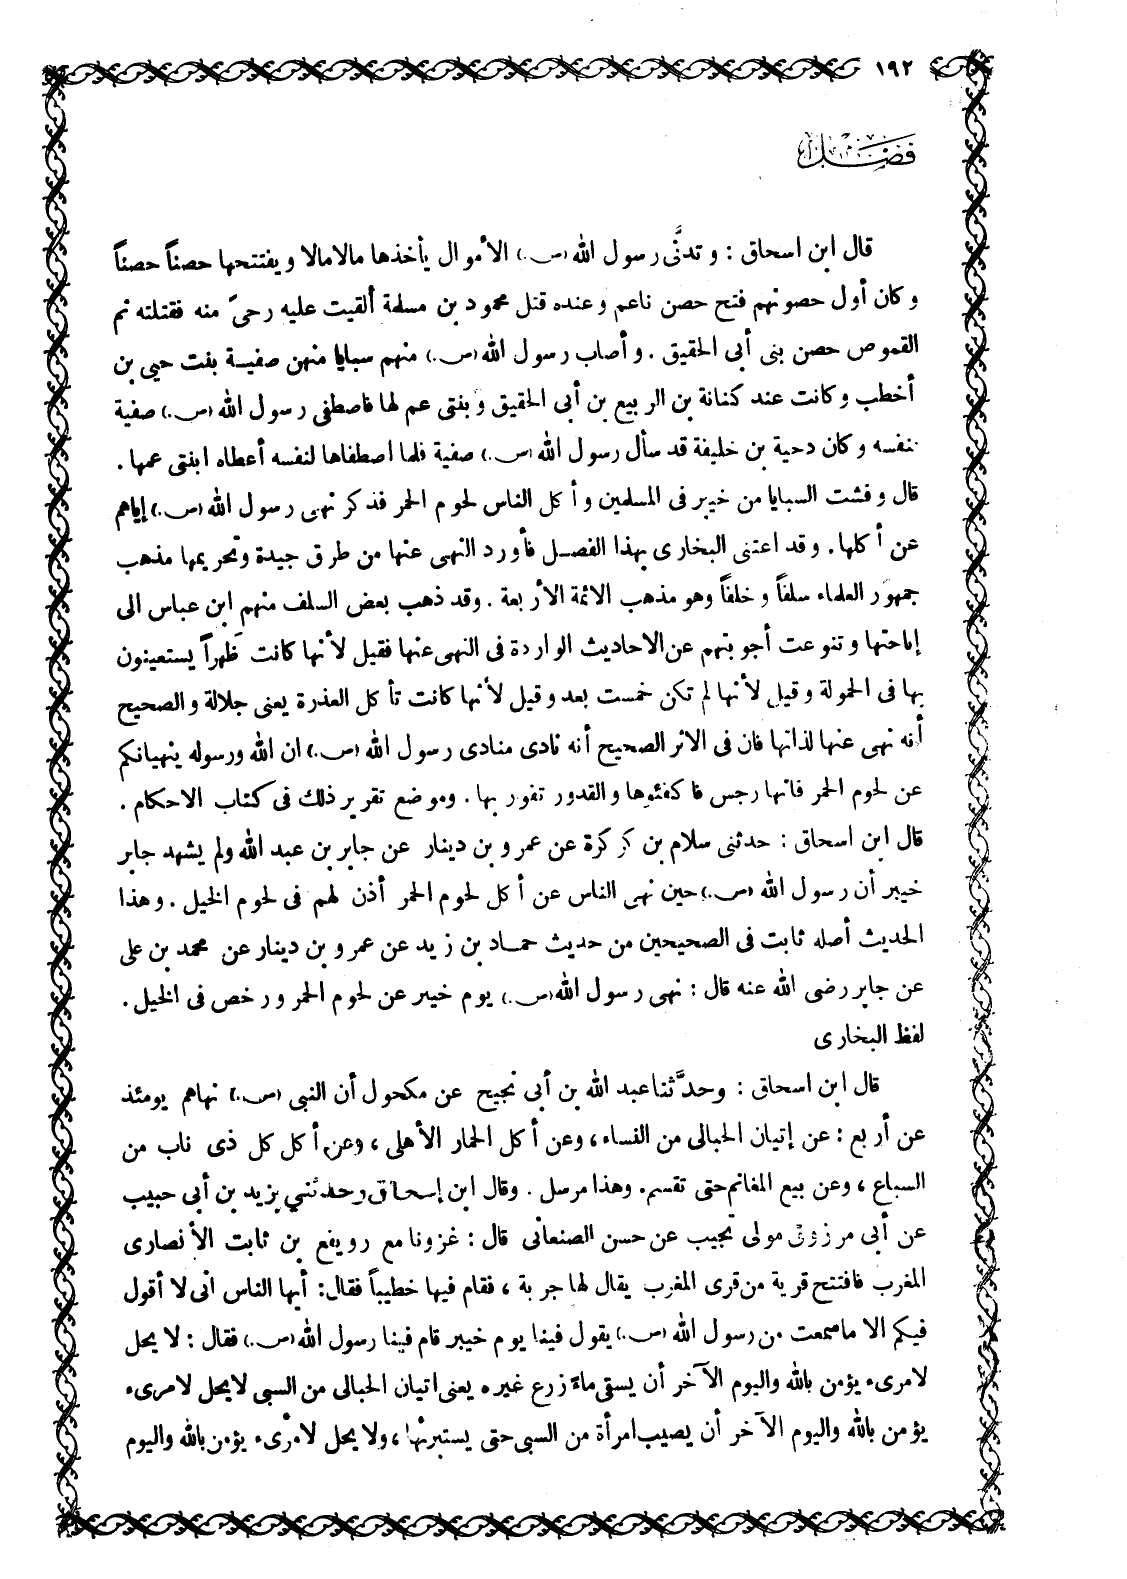 ١٩٢
فصل
قال ابن اسحاق : وتدنَّى رسول الله (ص.) الأموال يأخذها مالا مالا ويفتتحها حصناً حصناً
وكان أول حصونهم فتح حصن ناعم وعنده قتل محمود بن مسلمة ألقيت عليه رحىً منه فقتلته ثم
القموص حصن بنى أبى الحقيق . وأصاب رسول الله (ص.) منهم سبايا منهن صفيـة بنت حيى بن
أخطب وكانت عند كنانة بن الربيع بن أبى الحقيق وبنتى عم لها فاصطفى رسول الله (ص.) صفية
لنفسه وكان دحية بن خليفة قد سأل رسول الله (ص.) صفية فلما اصطفاها لنفسه أعطاه ابنتى عمها .
قال وفشت السبايا من خيبر فى المسلمين وأكل الناس لحوم الحمر فذكر نهى رسول الله (ص.) إياهم
عن أكلها . وقد اعتنى البخارى بهذا الفصـل فأورد النهى عنها من طرق جيدة وتحريمها مذهب
جمهور العلماء سلفاً وخلفاً وهو مذهب الائمة الأربعة . وقد ذهب بعض السلف منهم ابن عباس الى
إباحتها وتنوعت أجوبتهم عن الاحاديث الواردة فى النهى عنها فقيل لأنها كانت ظهراً يستعينون
بها فى الحمولة وقيل لأنها لم تكن خمست بعد وقيل لأنها كانت تأكل العذرة يعنى جلالة والصحيح
أنه نهى عنها لذاتها فان فى الاثر الصحيح أنه نادى منادى رسول الله (ص.) ان الله ورسوله ينهيانكم
عن لحوم الحمر فانها رجس فاكفئوها والقدور تفور بها . وموضع تقرير ذلك فى كتاب الاحكام .
قال ابن اسحاق : حدثنى سلام بن كركرة عن عمرو بن دينار عن جابر بن عبد الله ولم يشهد جابر
خيبر أن رسول الله (ص.) حين نهى الناس عن أكل لحوم الحمر أذن لهم فى لحوم الخيل . وهذا
الحديث أصله ثابت فى الصحيحين من حديث حمـاد بن زيد عن عمرو بن دينار عن محمد بن على
عن جابر رضى الله عنه قال : نهى رسول الله (ص.) يوم خيبر عن لحوم الحمر ورخص فى الخيل .
لفظ البخارى
قال ابن اسحاق : وحدَّثنا عبد الله بن أبى نجيح عن مكحول أن النبى (ص.) نهاهم يومئذ
عن أربع : عن إتيان الحبالى من النساء ، وعن أكل الحمار الأهلى ، وعن أكل كل ذى ناب من
السباع ، وعن بيع المغانم حتى تقسم . وهذا مرسل . وقال ابن إسحـاق وحدثني يزيد بن أبى حبيب
عن أبى مرزوق مولى تجيب عن حسن الصنعانى قال : غزونا مع رويفع بن ثابت الأنصارى
المغرب فافتتح قرية من قرى المغرب يقال لها جربة ، فقام فيها خطيباً فقال : أيها الناس انى لا أقول
فيكم الا ما سمعت من رسول الله (ص.) يقول فينا يوم خيبر قام فينا رسول الله (ص.) فقال : لا يحل
لامرىء يؤمن بالله واليوم الآخر أن يسقى ماءَ زرع غيره يعنى اتيان الحبالى من السبى لا يحل لامرىء
يؤمن بالله واليوم الآخر أن يصيب امرأة من السبى حتى يستبرئها ، ولا يحل لامرْىء يؤمن بالله واليوم